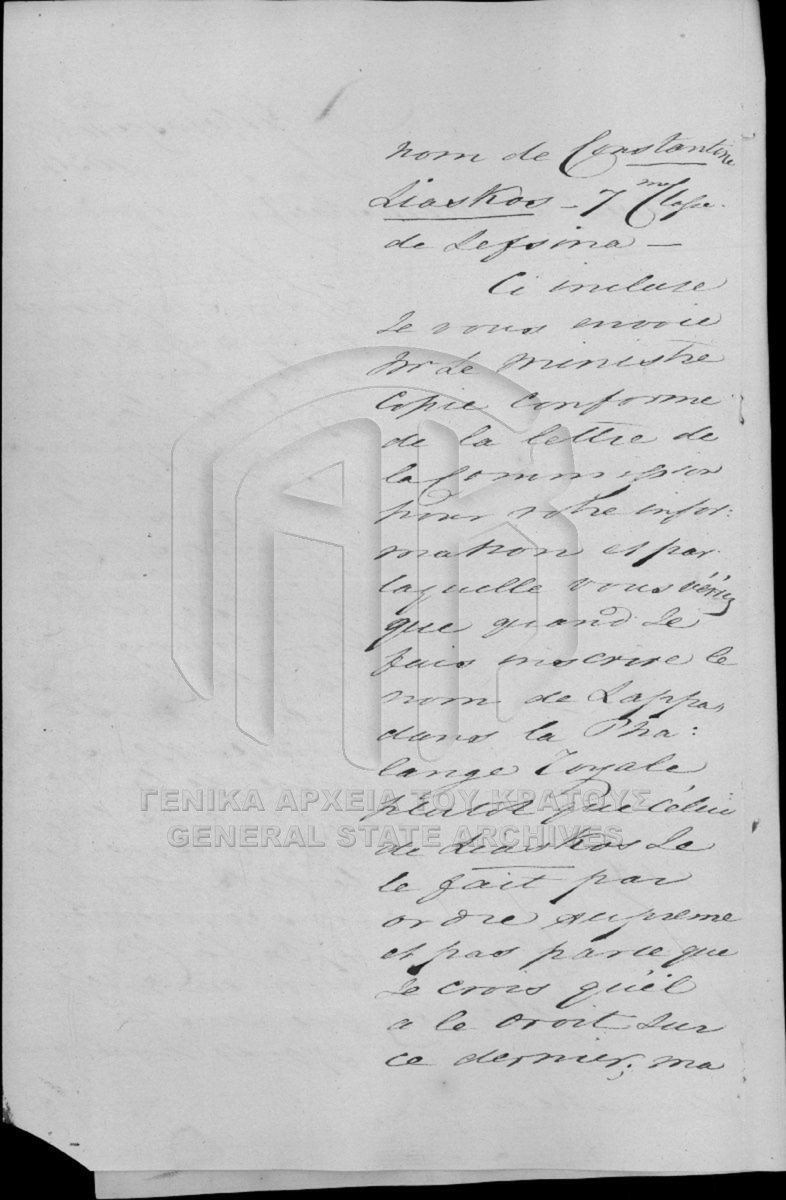 nom de Constantine
Liaskos - 7me Classe.
de Lefsina -
Ci incluse
Je vous envoie
Mr Le Ministre
Copie conforme
de la lettre de
la Commission
pour votre infor:
mation et par
laquelle vous
que quand Je
fais inscrire le
nom de Lappa,
dans la Pha:
lange Royale
ΓΕΝΙΚΑ ΑΡΧΕΙΑ ΤΟΥ ΚΡΑΤΟΥΣ
plutot que Celui
GENERAL STATE ARCHIVES
de Liaskos Je
le fait par
ordre supreme
et pas parce que
Je crois qu'il
a le droit sur
ce dernier; ma